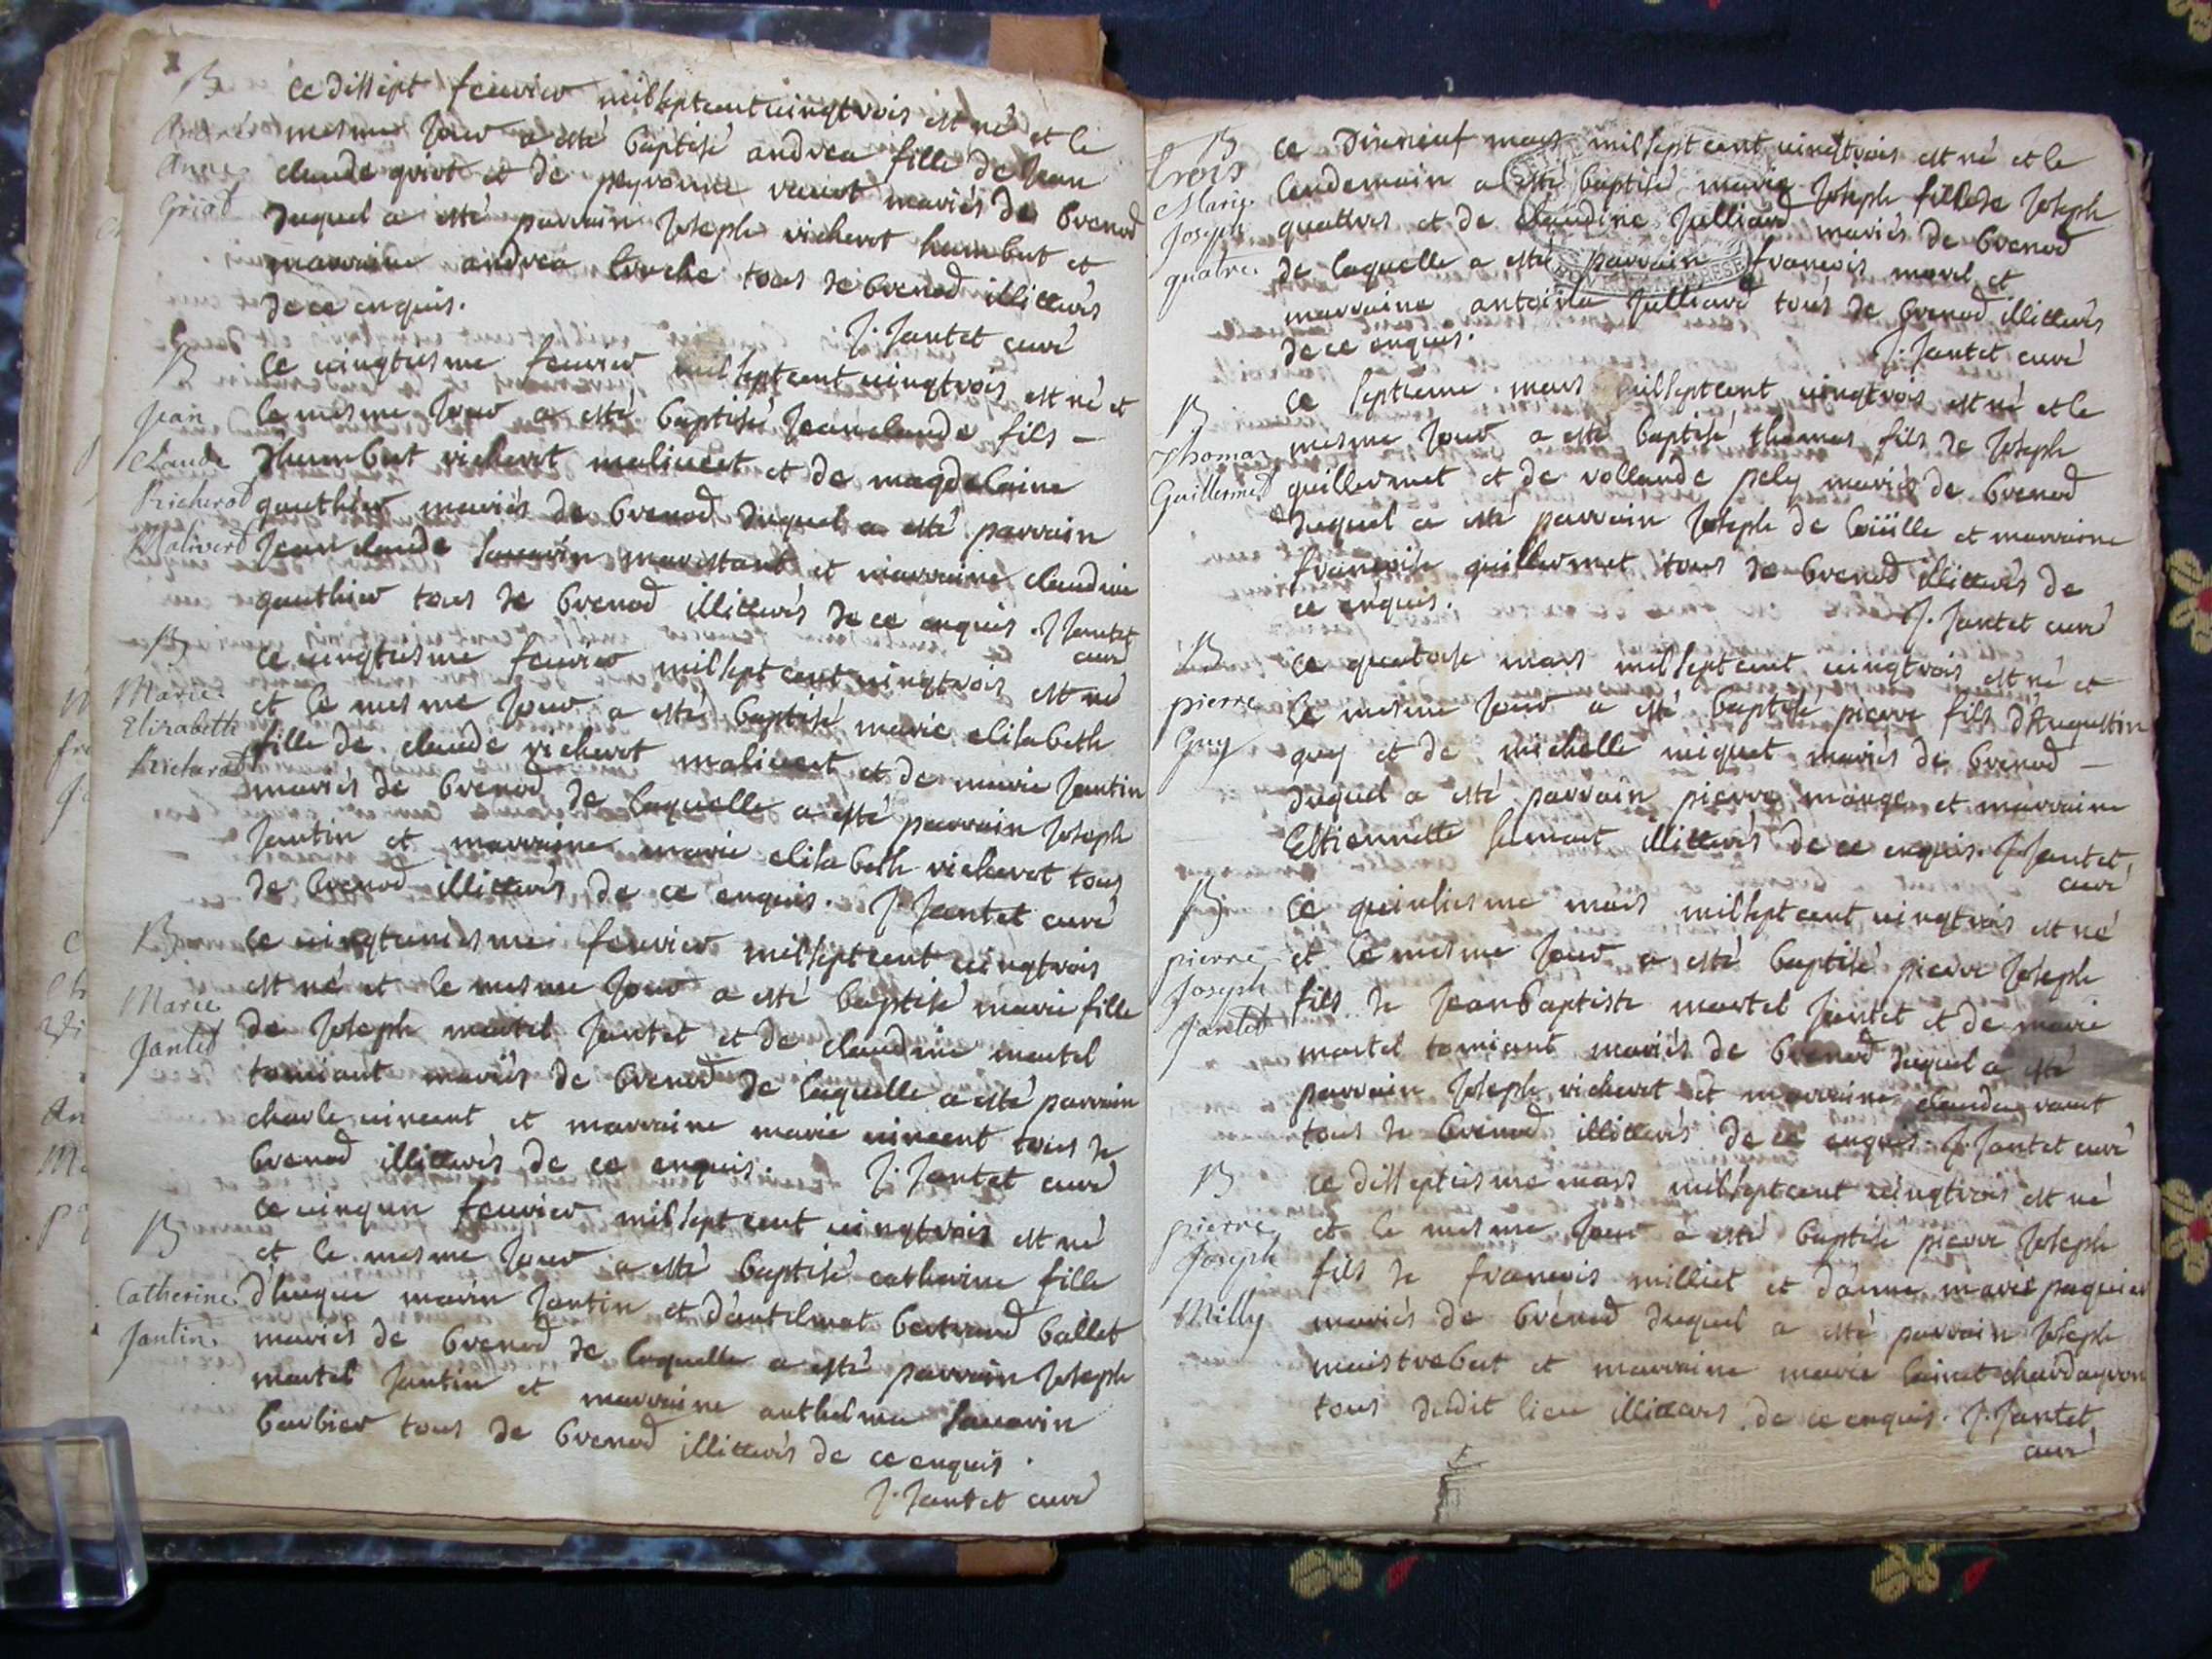 B
Andréa
Anne
Griot
ce dissept feuvier mil sept cent uingt trois est né et le
mesme Jour a esté baptisé andrea fille de Jean
claude griot et de peyronne vanot mariés de brenod
duquel a esté parrain Joseph richerot humbert et
marraine andrea tous de brenod illiterés
de ce enquis.
J. Jantet curé
B
Jean
Claude
Richerod
Malivert
ce uingtiesme feuvier mil sept cent uingt trois est né et
le mesme Jour a esté baptisé Jean claude fils –
dhumbert richerot maliuert et de magdelaine
gauthier mariés de brenod duquel a esté parrain
Jean claude sauarin marestant et marraine claudine
gauthier tous de brenod illiterés de ce enquis. J Jantet
curé
B
Marie
Elizabeth
Richerod
ce uingtiesme feuvier mil sept cent uingt trois est né
et le mesme Jour a esté baptisé marie elisabeth
fille de claude richerot maliuert et de marie Jantin
mariés de brenod de laquelle a esté parrain Joseph
Jantin et marraine marie elisabeth richerot tous
de brenod illiterés de ce enquis. J. Jantet curé
B
Marie
Jantet
ce uingtuniesme feuvier mil sept cent uingt trois
est né et le mesme Jour a esté baptisé marie fille
de Joseph martel Jantet et de claudine martel
tomiant mariés de brenod de laquelle a esté parrain
charle uincent et marraine marie uincent tous de
brenod illiterés de ce enquis. J. Jantet curé
B
Catherine
Jantin
ce uingun feuvier mil sept cent uingt trois est né
et le mesme Jour a esté baptisé catherine fille
d'hugue marin Jantin et d'antelmat bertrand ballet
mariés de brenod de laquelle a esté parrain Joseph
martel Jantin et marraine anthelma sauarin
barbier tous de brenod illiterés de ce enquis.
J. Jantet curé
B
trois
Marie
Joseph
quatre
ce dixneuf mars mil sept cent uingt trois est né et le
lendemain a esté baptisé marie Joseph fille de Joseph
quattres et de claudine Julliard mariés de brenod
de laquelle a esté parrain francois morel et
marraine Julliard tous de brenod illiterés
de ce enquis.
J. Jantet curé
B
Thomas
Guillermet
ce septieme mars mil sept cent uingt trois est né et le
mesme Jour a esté baptisé thomas fils de Joseph
guillermet et de vollande pely mariés de brenod
duquel a esté parrain Joseph de et marraine
francoise guillermet tous de brenod illiterés de
ce enquis.
J. Jantet curé
B
pierre
Guy
ce quatorse mars mil sept cent uingt trois est né et
le mesme Jour a esté baptisé pierre fils d'Augustin
guy et de michelle miquet mariés de brenod –
duquel a esté parrain pierre monge et marraine
Estiennette illiterés de ce enquis. J Jantet
curé
B
pierre
Joseph
Jantet
ce quinsiesme mars mil sept cent uingt trois est né
et le mesme Jour a esté baptisé pierre Joseph
fils de Jean baptiste martel Jantet et de marie
martel tomiant mariés de brenod duquel a esté
parrain Joseph richerot et marraine clauda vanot
tous de brenod illiterés de ce enquis. J. Jantet curé
B
pierre
Joseph
Milly
ce disseptiesme mars mil sept cent uingt trois est né
et le mesme Jour a esté baptisé pierre Joseph
fils de francois milliet et d'anne marie paquier
mariés de brenod duquel a esté parrain Joseph
maistrebert et marraine marie chardeyron
tous dudit lieu illiterés de ce enquis. J. Jantet
curé